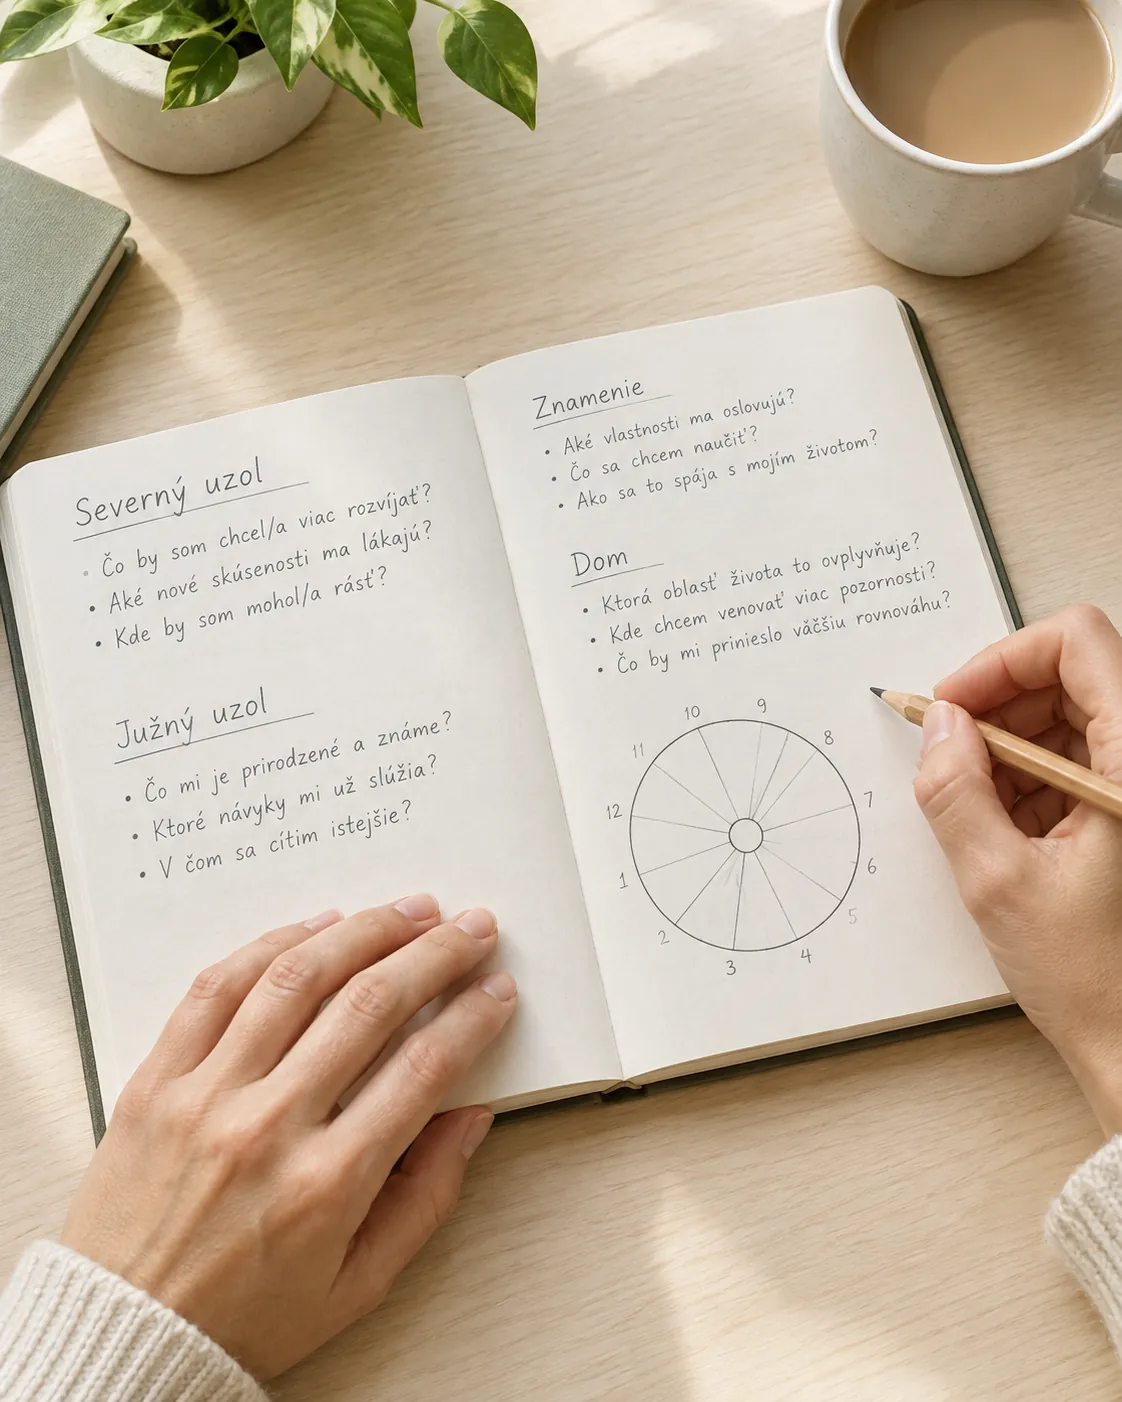 Severný uzol
• Čo by som chcel/a viac rozvíjať?
• Aké nové skúsenosti ma lákajú?
• Kde by som mohol/a rásť?
Južný uzol
• Čo mi je prirodzené a známe?
• Ktoré návyky mi už slúžia?
• V čom sa cítim istejšie?
Znamenie
• Aké vlastnosti ma oslovujú?
• Čo sa chcem naučiť?
• Ako sa to spája s mojím životom?
Dom
• Ktorá oblasť života to ovplyvňuje?
• Kde chcem venovať viac pozornosti?
• Čo by mi prinieslo väčšiu rovnováhu?
10
9
11
8
12
7
1
6
2
5
3
4